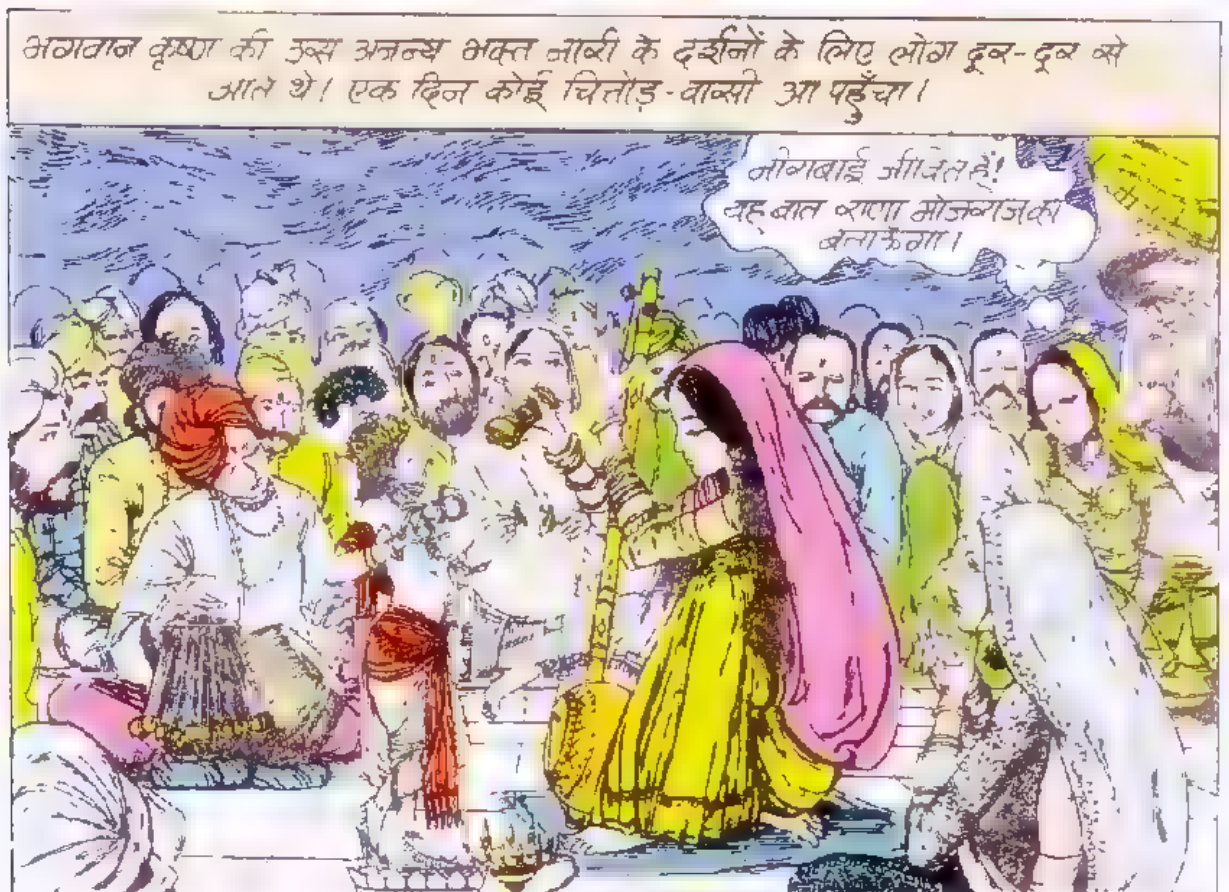 भगवान कृष्ण की उस अनन्य भक्त नारी के दर्शनों के लिए लोग दूर-दूर से
आते थे। एक दिन कोई चित्तौड़-वासी आ पहुँचा।
मीराबाई जीवित हैं!
यह बात राणा भोजराज को
बताऊँगा।